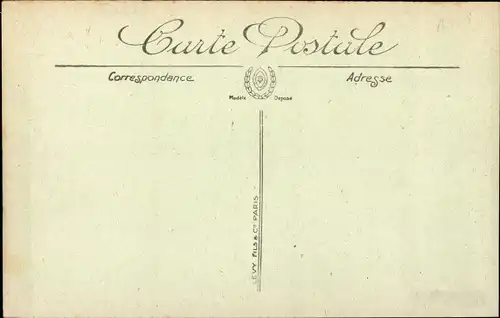 Carte Postale
Correspondance
Adresse
Modèle Déposé
LEVY FILS & Cie PARIS